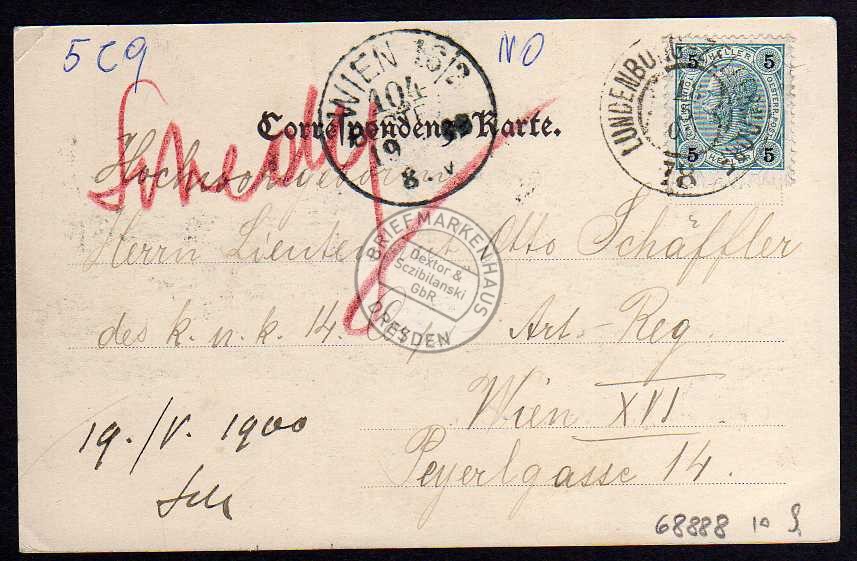 5C9
NO
WIEN 16/2
104
19
8
LUNDENBURG
5 HELLER 5
5 5
Correspondenz-Karte.
Hochwohlgeboren
Herrn Lieutenant Otto Schäffler
des k. u. k. 14. Art. Reg.
Wien XVI
Peyerlgasse 14.
19./V. 1900
BRIEFMARKENHAUS
Dextor &
Sczibilanski
GbR
DRESDEN
68888 10